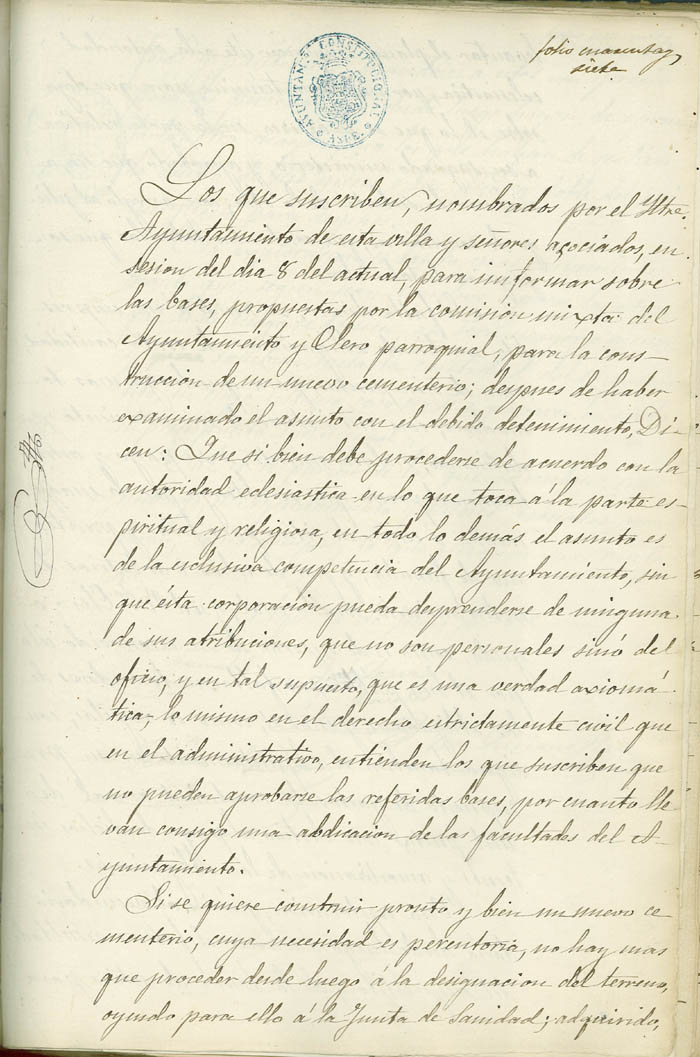 folio cuarenta y
siete
AYUNTAM.TO CONSTITUCIONAL
* ASPE. *
Los que suscriben, nombrados por el Yltre.
Ayuntamiento de esta villa y señores asociados, en
sesion del dia 8 del actual, para informar sobre
las bases, propuestas por la comisión mixta del
Ayuntamiento y Clero parroquial, para la cons-
trucción de un nuevo cementerio; despues de haber
examinado el asunto con el debido detenimiento, Di-
cen: Que si bien debe procederse de acuerdo con la
autoridad eclesiastica en lo que toca á la parte es-
piritual y religiosa, en todo lo demás el asunto es
de la exclusiva competencia del Ayuntamiento, sin
que ésta corporación pueda desprenderse de ninguna
de sus atribuciones, que no son personales sinó del
oficio, y en tal supuesto, que es una verdad axiomá-
tica, lo mismo en el derecho estrictamente civil que
en el administrativo, entienden los que suscriben que
no pueden aprobarse las referidas bases, por cuanto lle-
van consigo una abdicacion de las facultades del A-
yuntamiento.
Si se quiere construir pronto y bien un nuevo ce-
menterio, cuya necesidad es perentoria, no hay mas
que proceder desde luego á la designacion del terreno,
oyendo para ello á la Junta de Sanidad; adquirido,